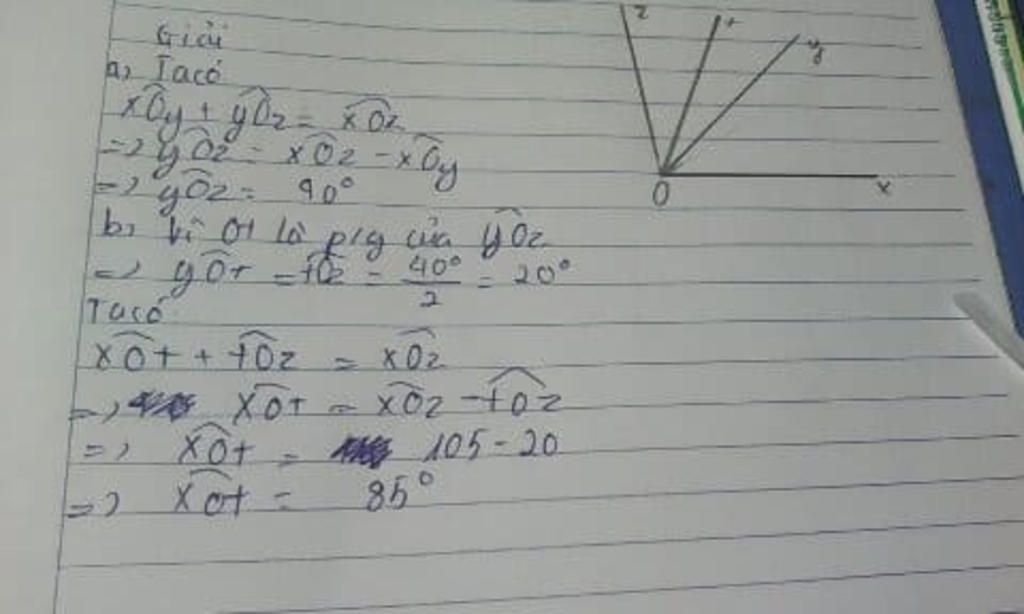 Giải
a) Ta có
xOy + yOz = xOz
=> yOz = xOz - xOy
=> yOz = 40°
b) Vì Ot là p/g của yOz
=> yOt = tOz = 40°/2 = 20°
Ta có
xOt + tOz = xOz
=> xOt = xOz - tOz
=> xOt = 105 - 20
=> xOt = 85°
z
t
y
O
x